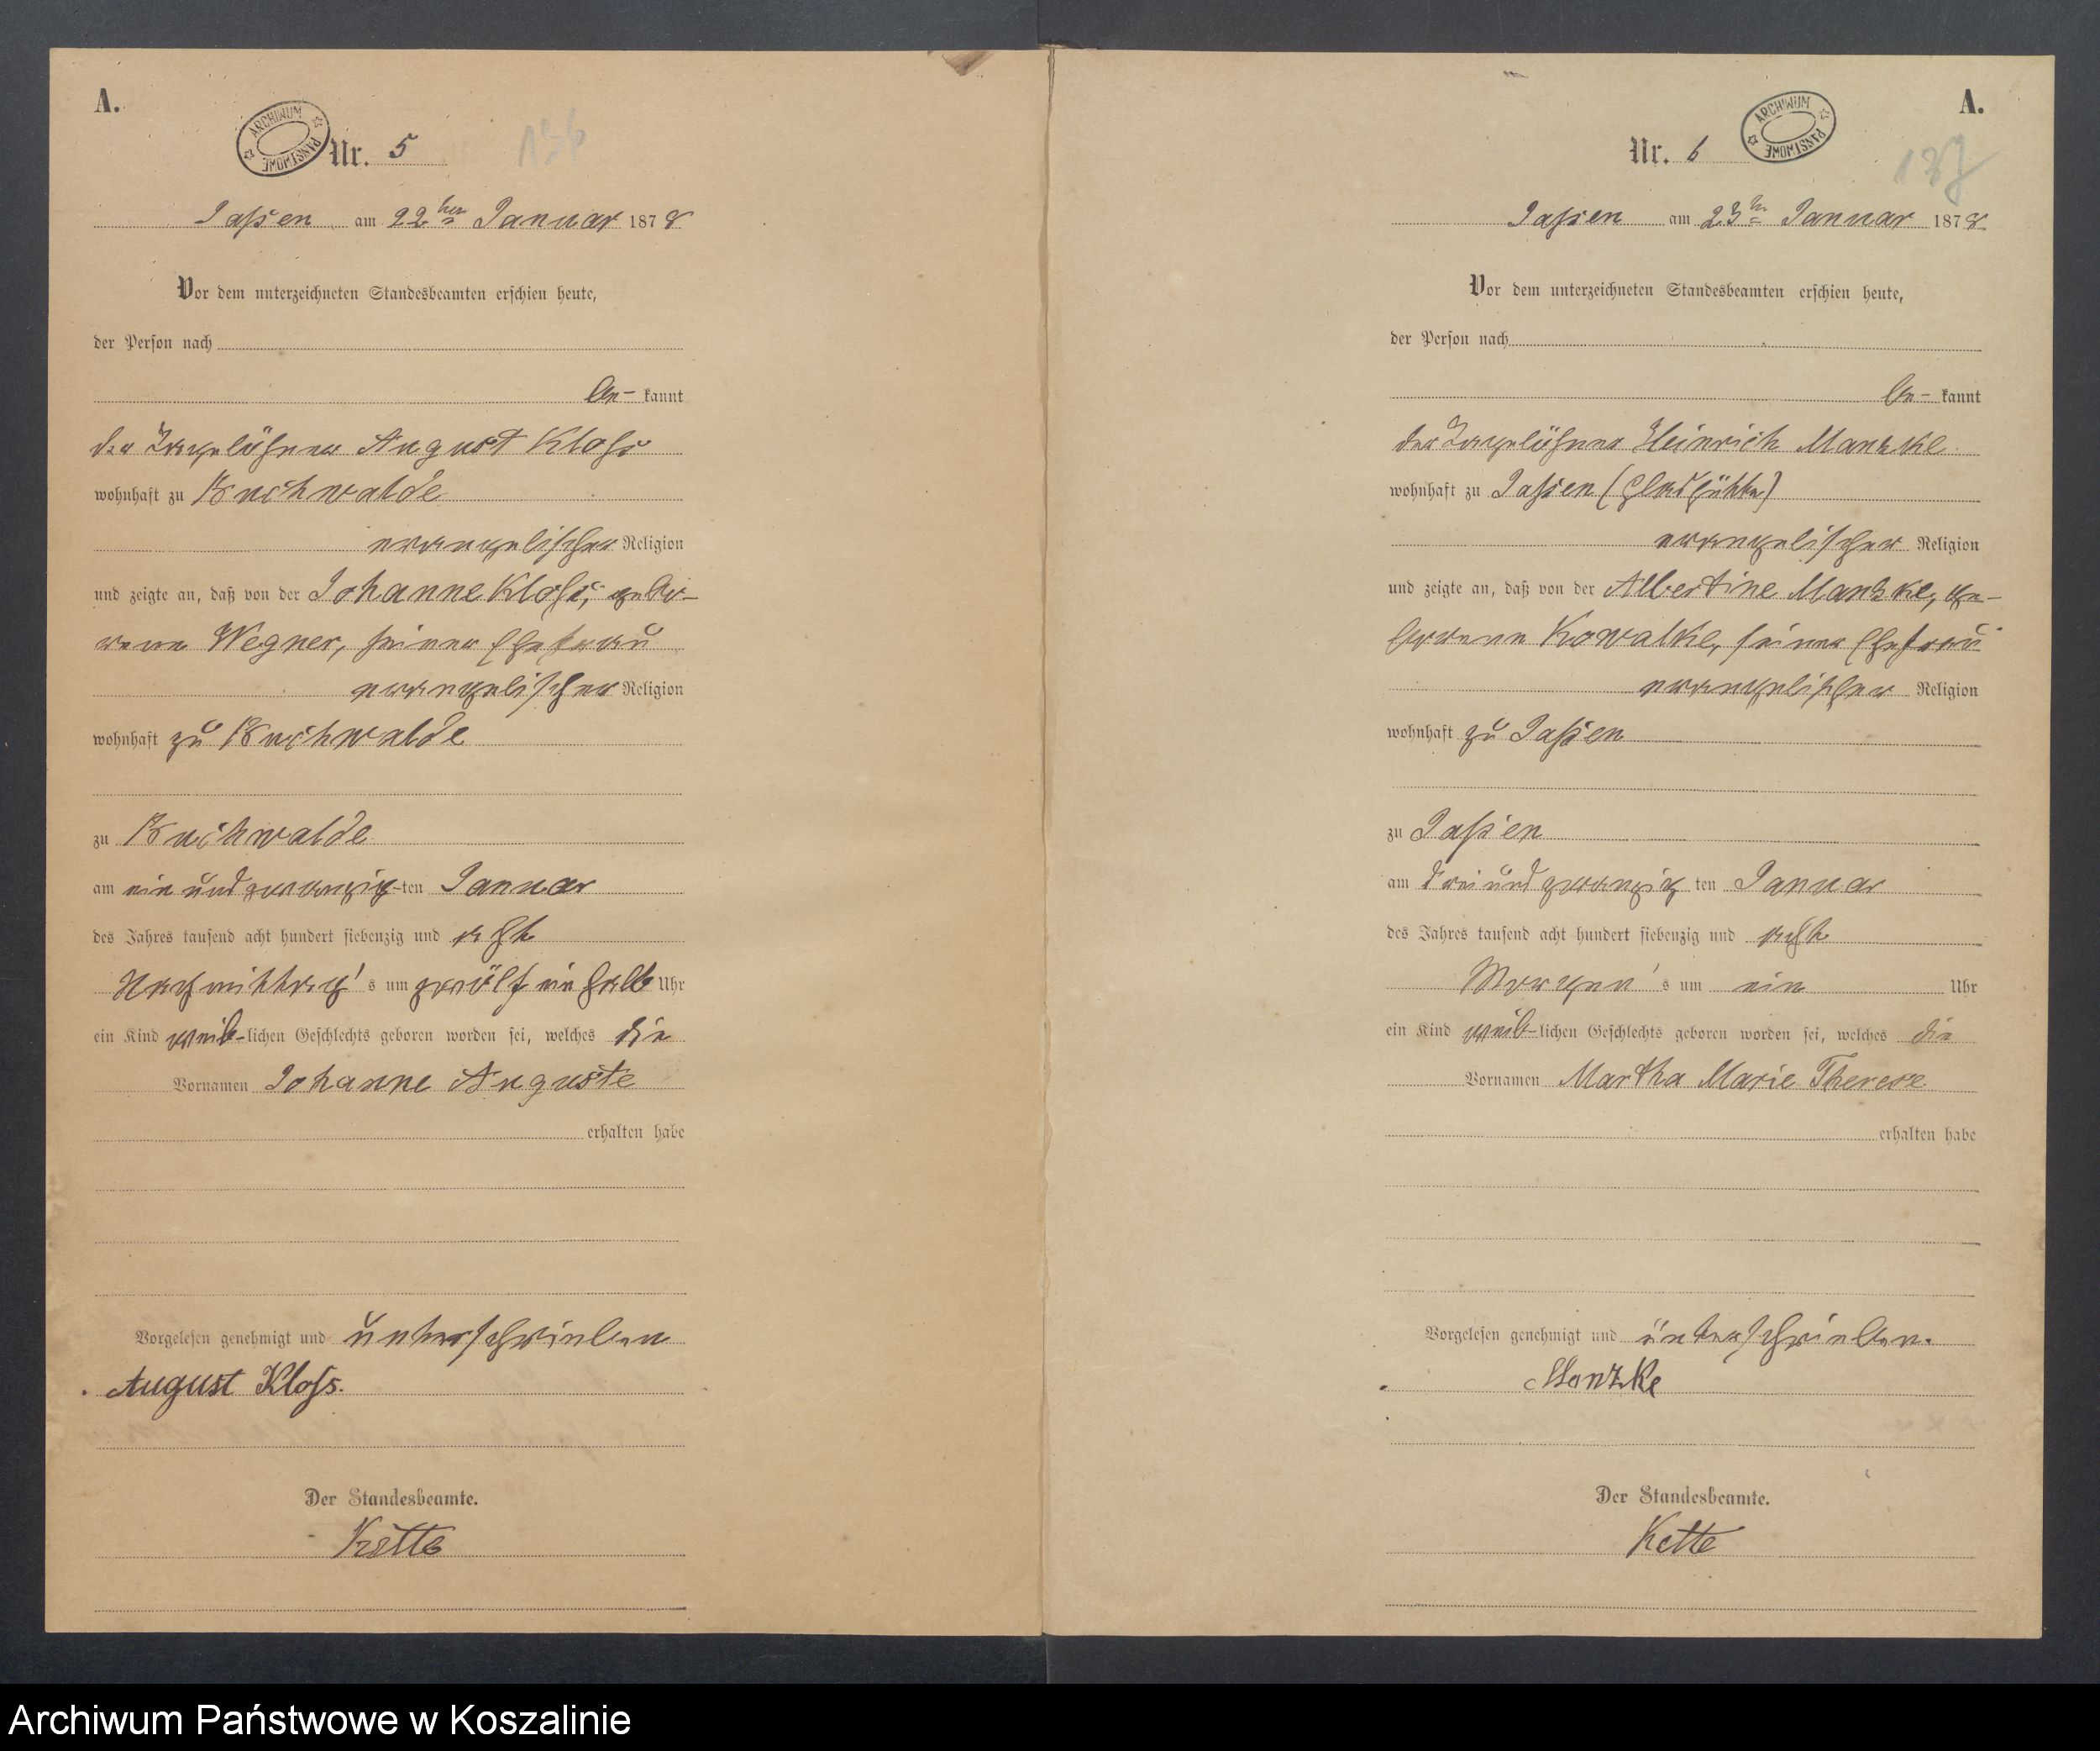 A.
ARCHIWUM PAŃSTWOWE
Nr. 5
136
Jaßen am 22ten Januar 1878
Vor dem unterzeichneten Standesbeamten erschien heute,
der Person nach
be- kannt
der Tagelöhner August Kloß
wohnhaft zu Buchwalde
evangelischer Religion
und zeigte an, daß von der Johanne Kloß, gebo-
rene Wegner, seiner Ehefrau
evangelischer Religion
wohnhaft zu Buchwalde
zu Buchwalde
am ein und zwanzig-ten Januar
des Jahres tausend acht hundert siebenzig und acht
Nachmittag's um zwölf ein halb Uhr
ein Kind weib-lichen Geschlechts geboren worden sei, welches die
Vornamen Johanne Auguste
erhalten habe
Vorgelesen genehmigt und unterschrieben
August Kloß.
Der Standesbeamte.
Kette
A.
ARCHIWUM PAŃSTWOWE
Nr. 6
137
Jaßen am 23ten Januar 1878
Vor dem unterzeichneten Standesbeamten erschien heute,
der Person nach
be- kannt
der Tagelöhner Heinrich Manzke
wohnhaft zu Jaßen (Glashütte)
evangelischer Religion
und zeigte an, daß von der Albertine Manzke, ge-
borene Kowalke, seiner Ehefrau
evangelischer Religion
wohnhaft zu Jaßen
zu Jaßen
am drei und zwanzig ten Januar
des Jahres tausend acht hundert siebenzig und acht
Morgen's um ein Uhr
ein Kind weib-lichen Geschlechts geboren worden sei, welches die
Vornamen Martha Marie Therese
erhalten habe
Vorgelesen genehmigt und unterschrieben.
Manzke
Der Standesbeamte.
Kette
Archiwum Państwowe w Koszalinie